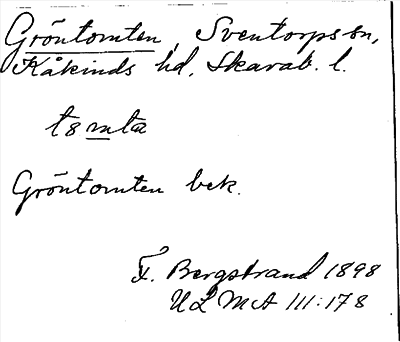 Gröntomten, Sventorps sn,
Kåkinds hd, Skarab. l.
t8mta
Gröntomten bek.
F. Bergstrand 1898
ULMA 111:178